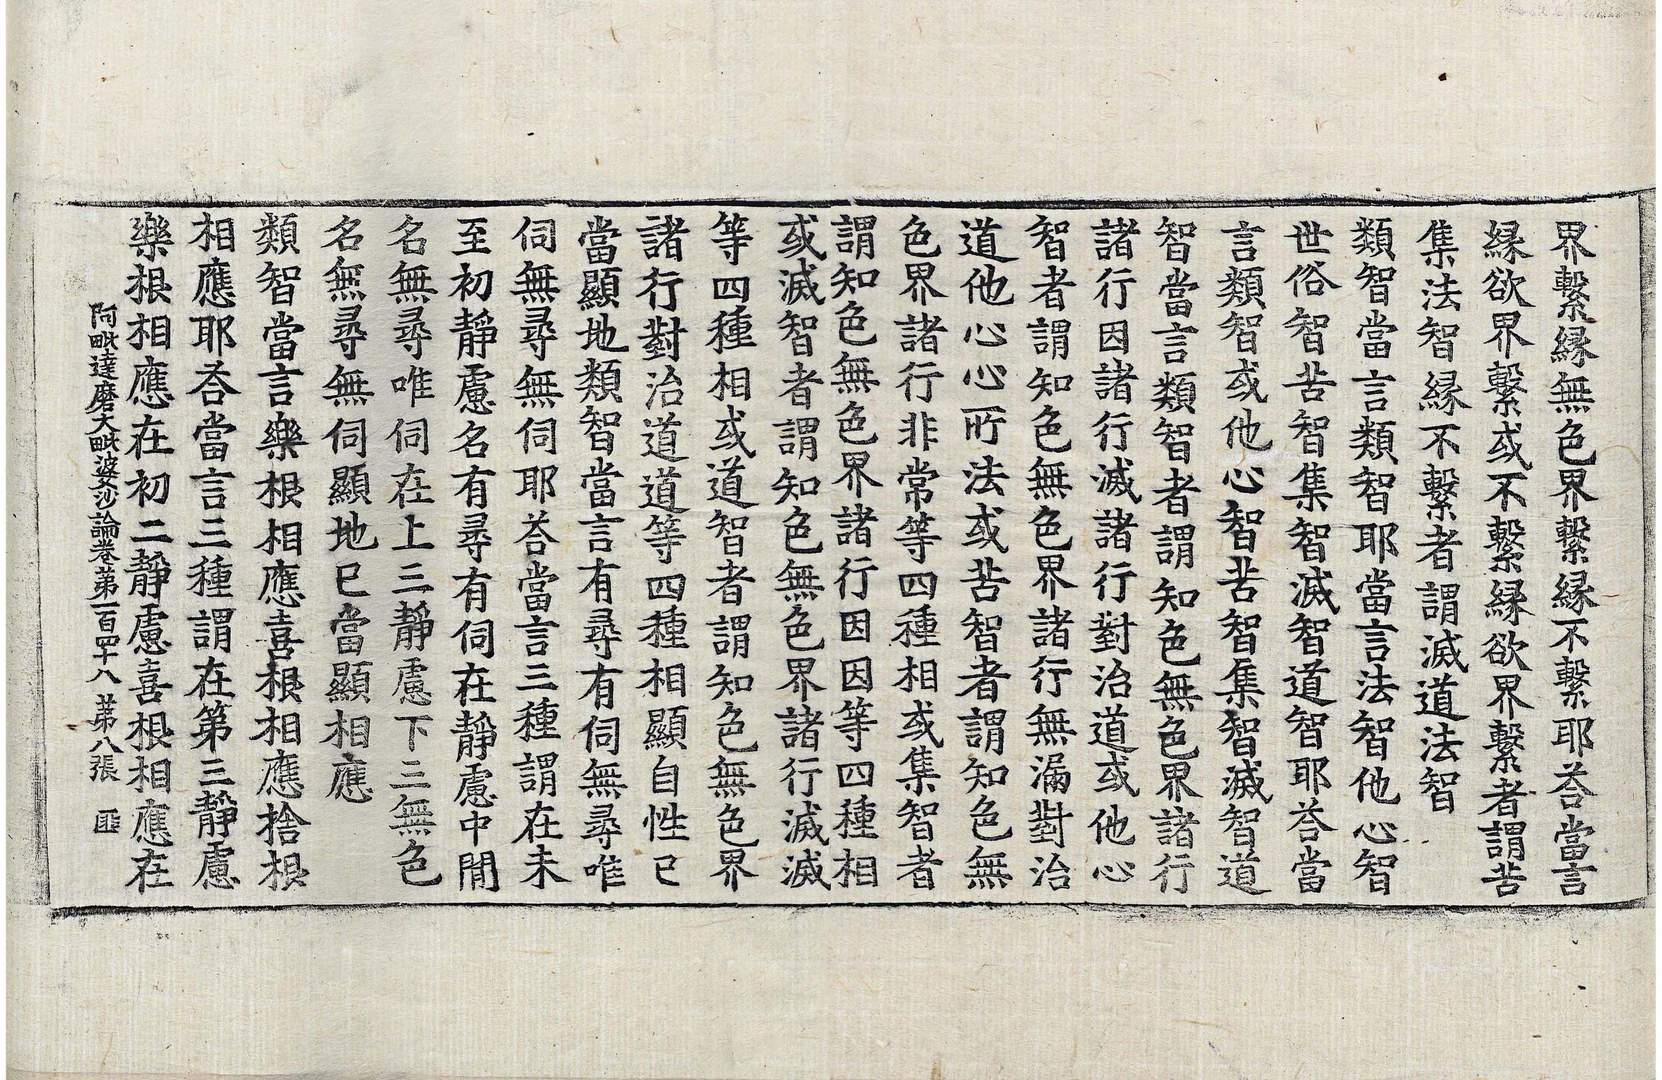 界繫緣無色界繫緣不繫耶荅當言
緣欲界繫或不繫緣欲界繫者謂苦
集法智緣不繫者謂滅道法智
類智當言類智耶當言法智他心智
世俗智苦智集智滅智道智耶荅當
言類智或他心智苦智集智滅智道
智當言類智者謂知色無色界諸行
諸行因諸行滅諸行對治道或他心
智者謂知色無色界諸行無漏對治
道他心心所法或苦智者謂知色無
色界諸行非常等四種相或集智者
謂知色無色界諸行因因等四種相
或滅智者謂知色無色界諸行滅滅
等四種相或道智者謂知色無色界
諸行對治道道等四種相顯自性已
當顯地類智當言有尋有伺無尋唯
伺無尋無伺耶荅當言三種謂在未
至初靜慮名有尋有伺在靜慮中間
名無尋唯伺在上三靜慮下三無色
名無尋無伺顯地已當顯相應
類智當言樂根相應喜根相應捨根
相應耶荅當言三種謂在第三靜慮
樂根相應在初二靜慮喜根相應在
阿毗達磨大毗婆沙論卷第一百四十八 第八張 匪